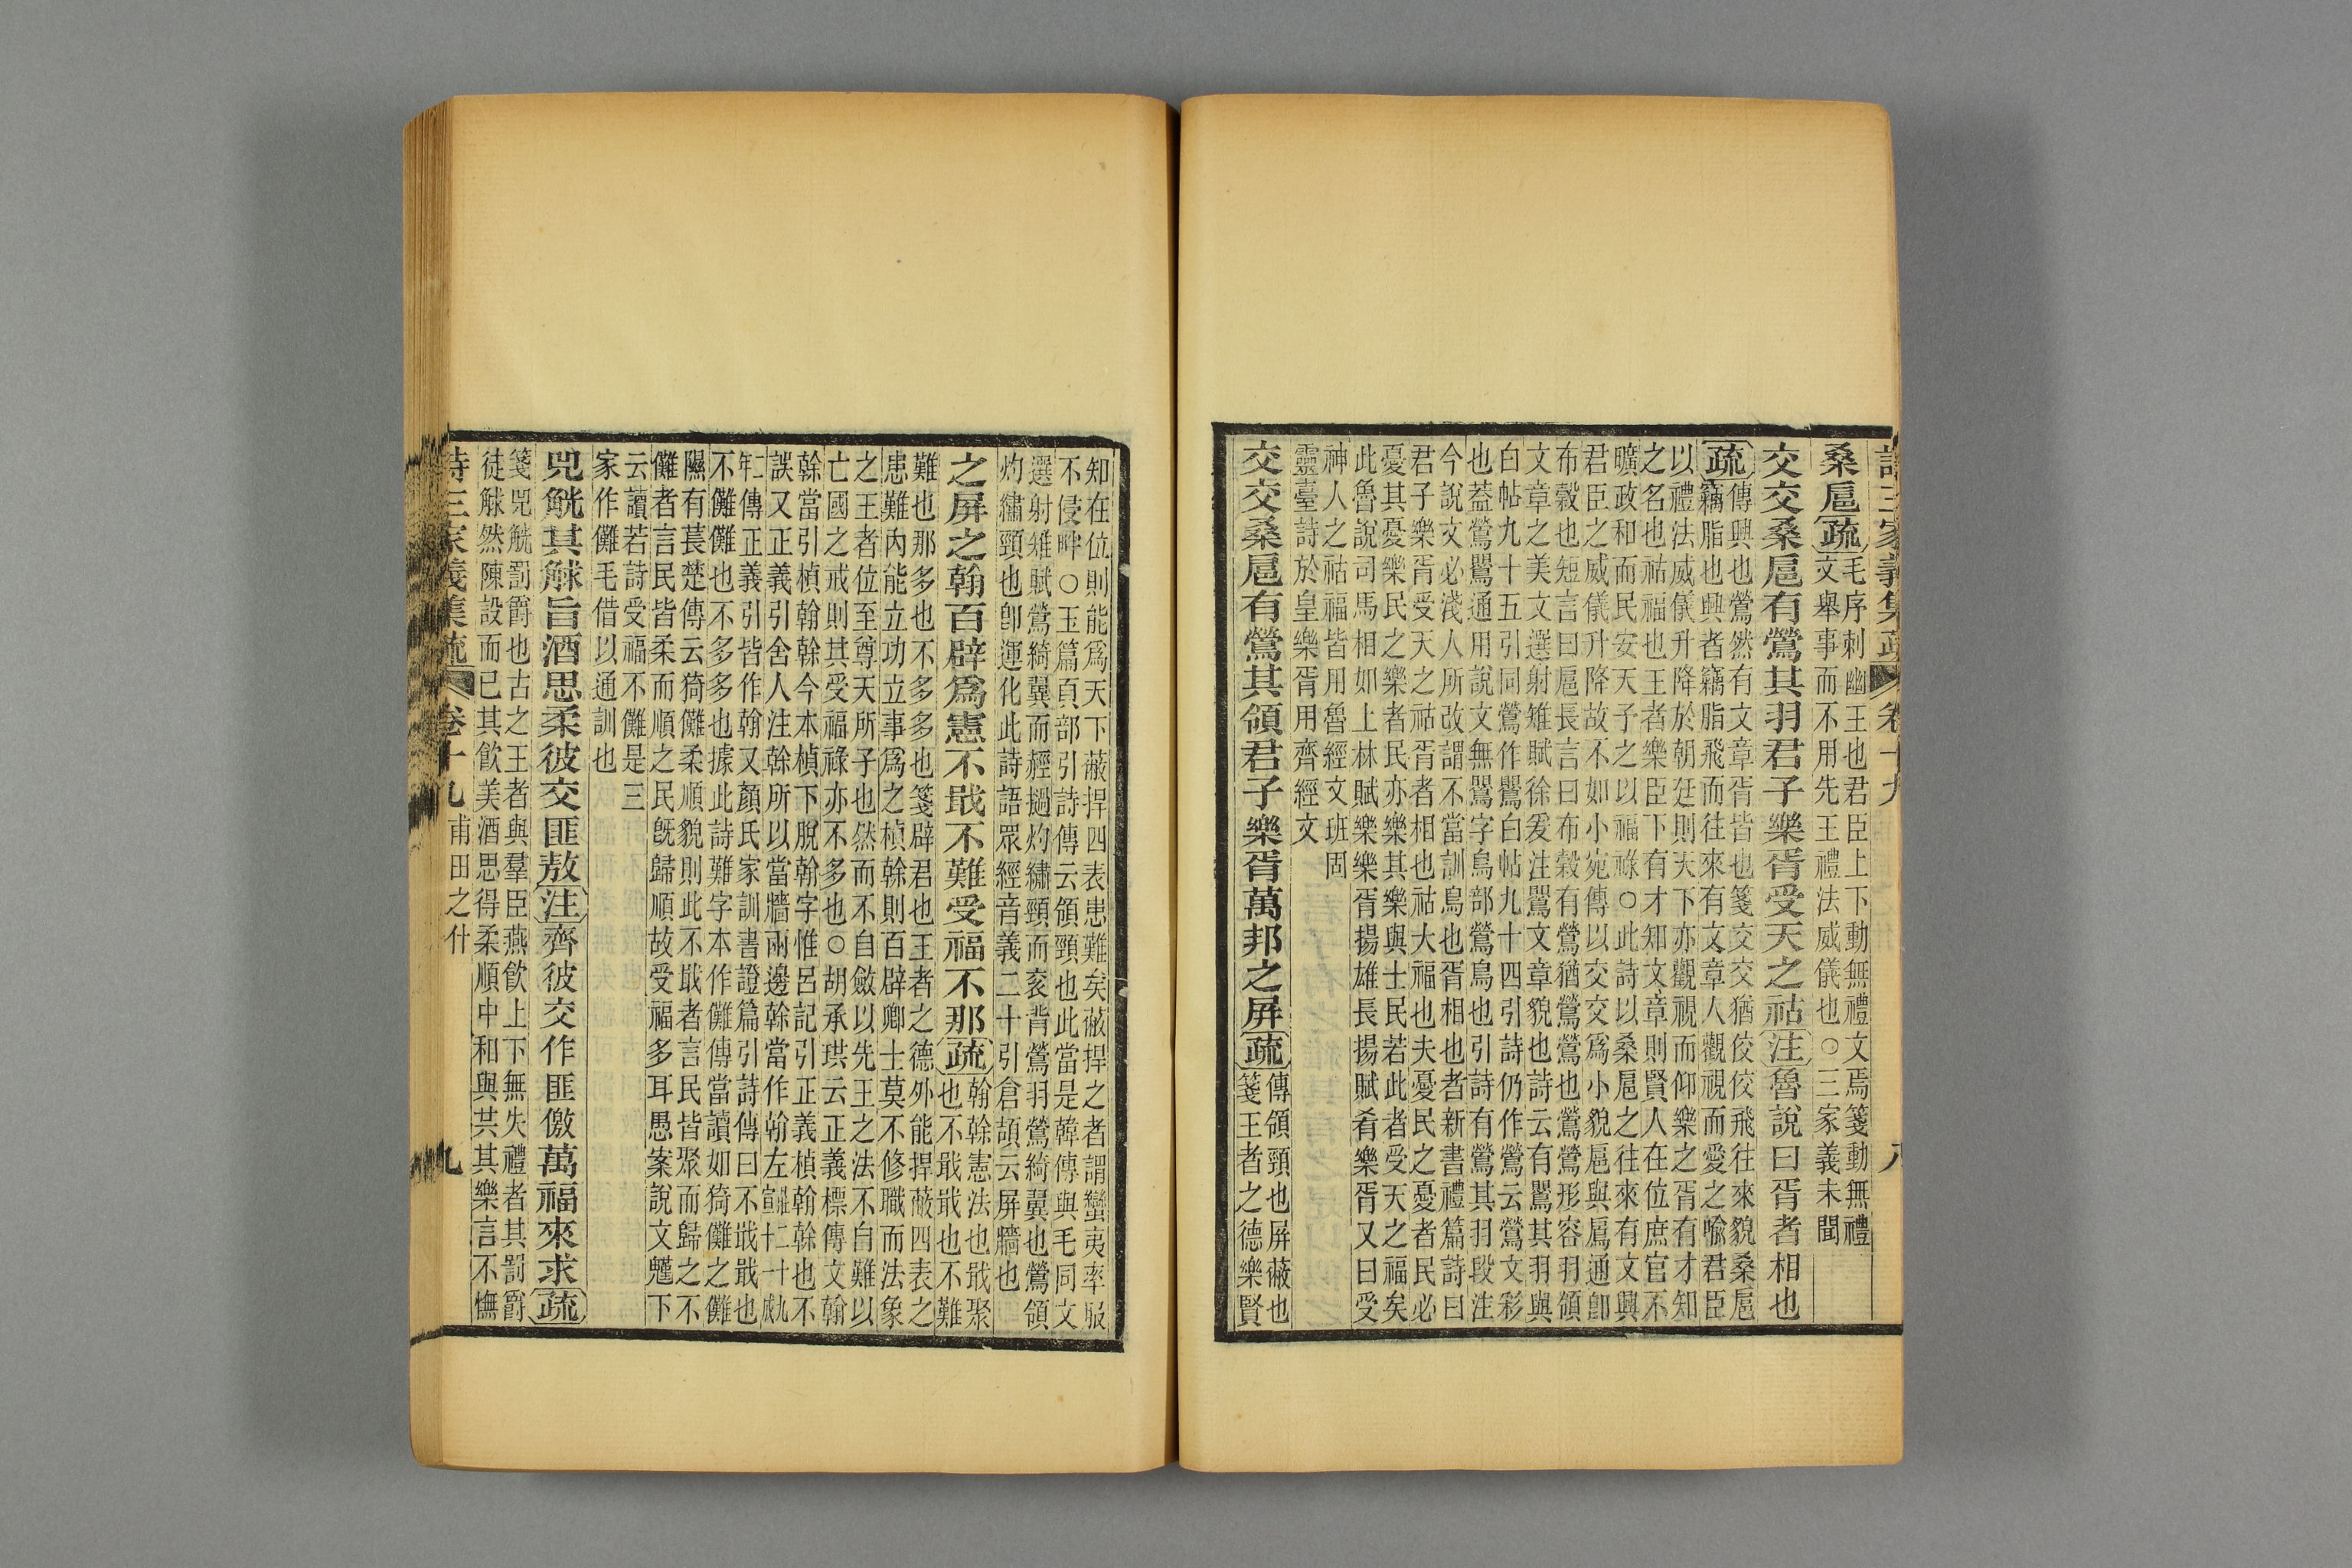 詩三家義集疏 卷十九 八
桑扈疏毛序刺幽王也君臣上下動無禮文焉箋動無禮
文舉事而不用先王禮法威儀也○三家義未聞
交交桑扈有鶯其羽君子樂胥受天之祜注魯說曰胥者相也
疏傳興也鶯然有文章胥皆也箋交交猶佼佼飛往來貌桑扈
竊脂也興者竊脂飛而往來有文章人觀視而愛之喻君臣
以禮法威儀升降於朝廷則天下亦觀視而仰樂之胥有才知
之名也祜福也王者樂臣下有才知文章則賢人在位庶官不
曠政和而民安天子之以福祿○此詩以桑扈之往來有文興
君臣之威儀升降故不如小宛傳以交交爲小貌扈與鳸通卽
布穀也短言曰扈長言曰布穀有鶯猶鶯鶯也鶯鶯形容羽領
文章之美文選射雉賦徐爰注鸎文章貌也詩云有鸎其羽與
白帖九十五引同鶯作鸎白帖九十四引詩仍作鶯云鶯文彩
也葢鶯鸎通用說文無鸎字鳥部鶯鳥也引詩有鶯其羽段注
今說文必淺人所改謂不當訓鳥也胥相也者新書禮篇詩曰
君子樂胥受天之祜胥者相也祜大福也夫憂民之憂者民必
憂其憂樂民之樂者民亦樂其樂與士民若此者受天之福矣
此魯說司馬相如上林賦樂樂胥揚雄長揚賦肴樂胥又曰受
神人之祜福皆用魯經文班固
靈臺詩於皇樂胥用齊經文
交交桑扈有鶯其領君子樂胥萬邦之屏疏傳領頸也屏蔽也
箋王者之德樂賢
知在位則能爲天下蔽捍四表患難矣蔽捍之者謂蠻夷率服
不侵畔○玉篇頁部引詩傳云領頸也此當是韓傳與毛同文
選射雉賦鶯綺翼而經撾灼繡頸而衮背鶯羽鶯綺翼也鶯領
灼繡頸也卽運化此詩語眾經音義二十引倉頡云屏牆也
之屏之翰百辟爲憲不戢不難受福不那疏翰榦憲法也戢聚
也不戢戢也不難
難也那多也不多多也箋辟君也王者之德外能捍蔽四表之
患難內能立功立事爲之楨榦則百辟卿士莫不修職而法象
之王者位至尊天所子也然而不自斂以先王之法不自難以
亡國之戒則其受福祿亦不多也○胡承珙云正義標傳文翰
榦當引楨翰榦今本楨下脫翰字惟呂記引正義楨翰榦也不
誤又正義引舍人注榦所以當牆兩邊榦當作翰左宣十二
年傳正義引皆作翰又顏氏家訓書證篇引詩傳曰不戢戢也
不儺儺也不多多也據此詩難字本作儺傳當讀如猗儺之儺
隰有萇楚傳云猗儺柔順貌則此不戢者言民皆聚而歸之不
儺者言民皆柔而順之民旣歸順故受福多耳愚案說文魕下
云讀若詩受福不儺是三
家作儺毛借以通訓也
兕觥其觩旨酒思柔彼交匪敖注齊彼交作匪儌萬福來求疏
箋兕觥罰爵也古之王者與羣臣燕飮上下無失禮者其罰爵
徒觩然陳設而已其飮美酒思得柔順中和與共其樂言不憮
詩三家義集疏 卷十九 甫田之什 九